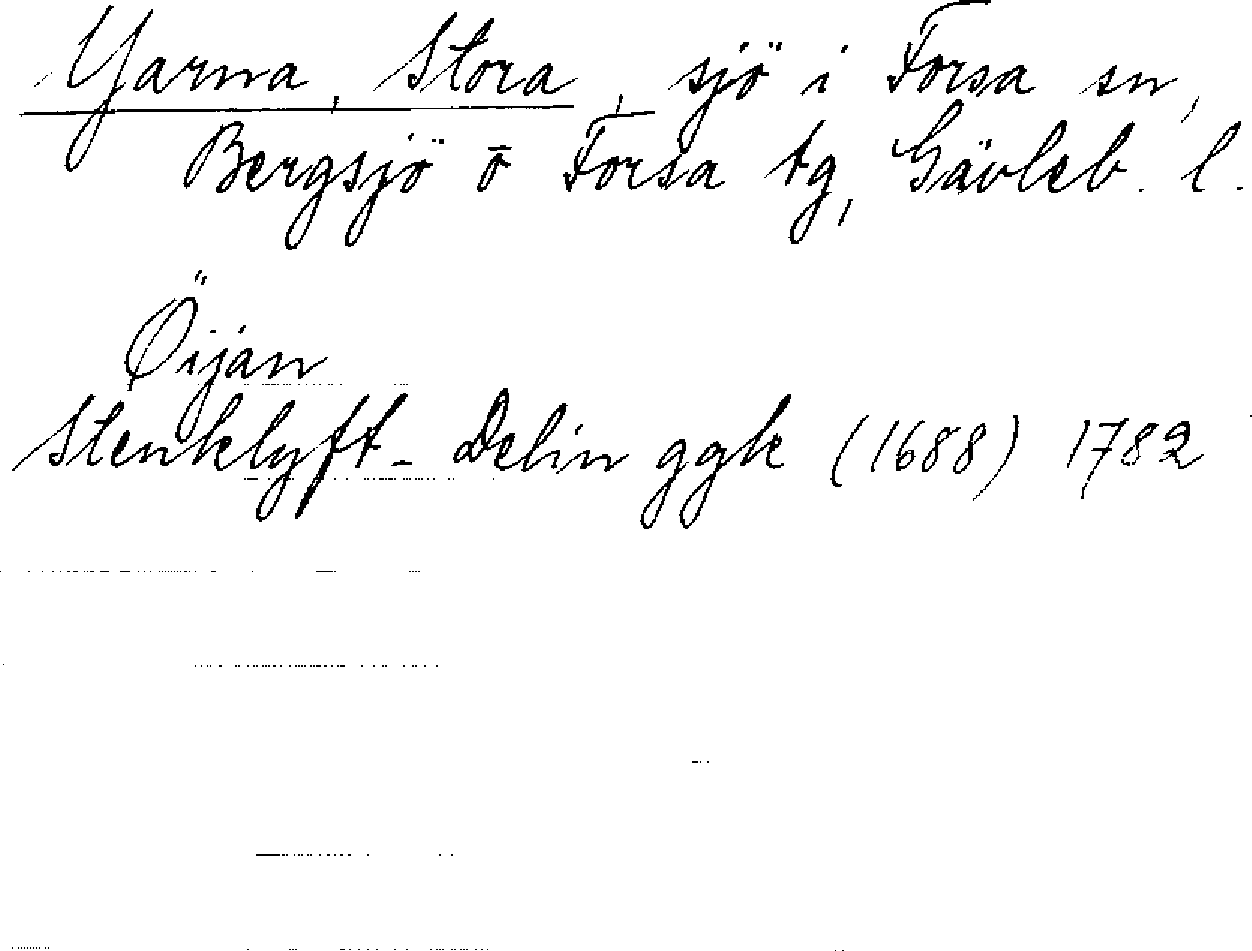 Yarna, Stora, sjö i Forsa sn,
Bergsjö o Forsa tg, Gävleb. l.
Öijan
Stenklyft- Delin ggk (1688) 1782